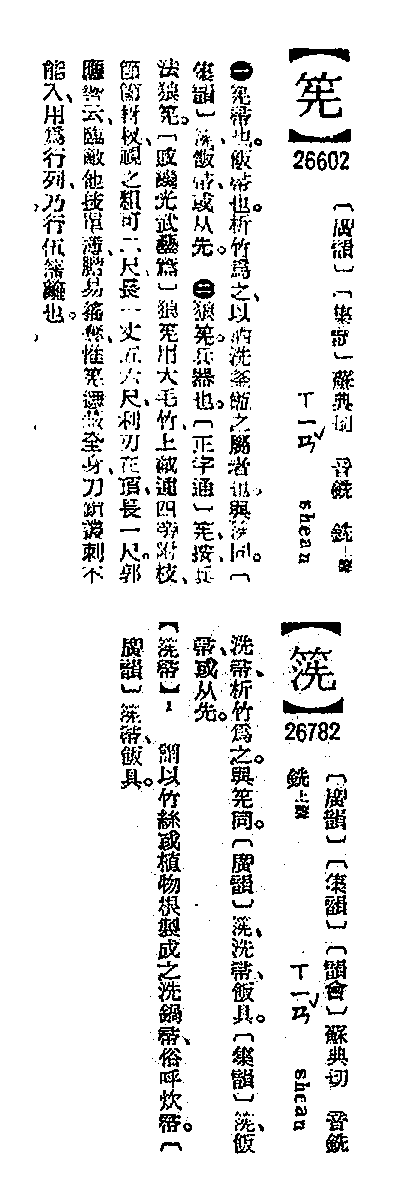 【筅】
26602
〔廣韻〕〔集韻〕蘇典切 音銑 銑上聲
ㄒㄧㄢˇ shean
❶筅、帚也。飯帚也。析竹爲之、以洒洗釜甑之屬者也。與筅同。〔
集韻〕筅、飯帚、或从先。❷狼筅、兵器也。〔正字通〕筅、按、兵
法狼筅。〔戚繼光武藝篇〕狼筅用大毛竹、上截連四旁附枝、
節節杈枒、視之粗可二尺、長一丈五六尺、利刃在頂、長一尺。郭
應響云、臨敵他技單薄、膽易搖奪、惟筅遮蔽全身、刀鎗叢刺不
能入、用爲行列、乃行伍藩籬也。
【箲】
26782
〔廣韻〕〔集韻〕〔韻會〕蘇典切 音銑
銑上聲
ㄒㄧㄢˇ shean
洗帚、析竹爲之。與筅同。〔廣韻〕箲、洗帚、飯具。〔集韻〕箲、飯
帚、或从先。
【箲帚】 謂以竹絲或植物根製成之洗鍋帚、俗呼炊帚。〔
廣韻〕箲、帚、飯具。